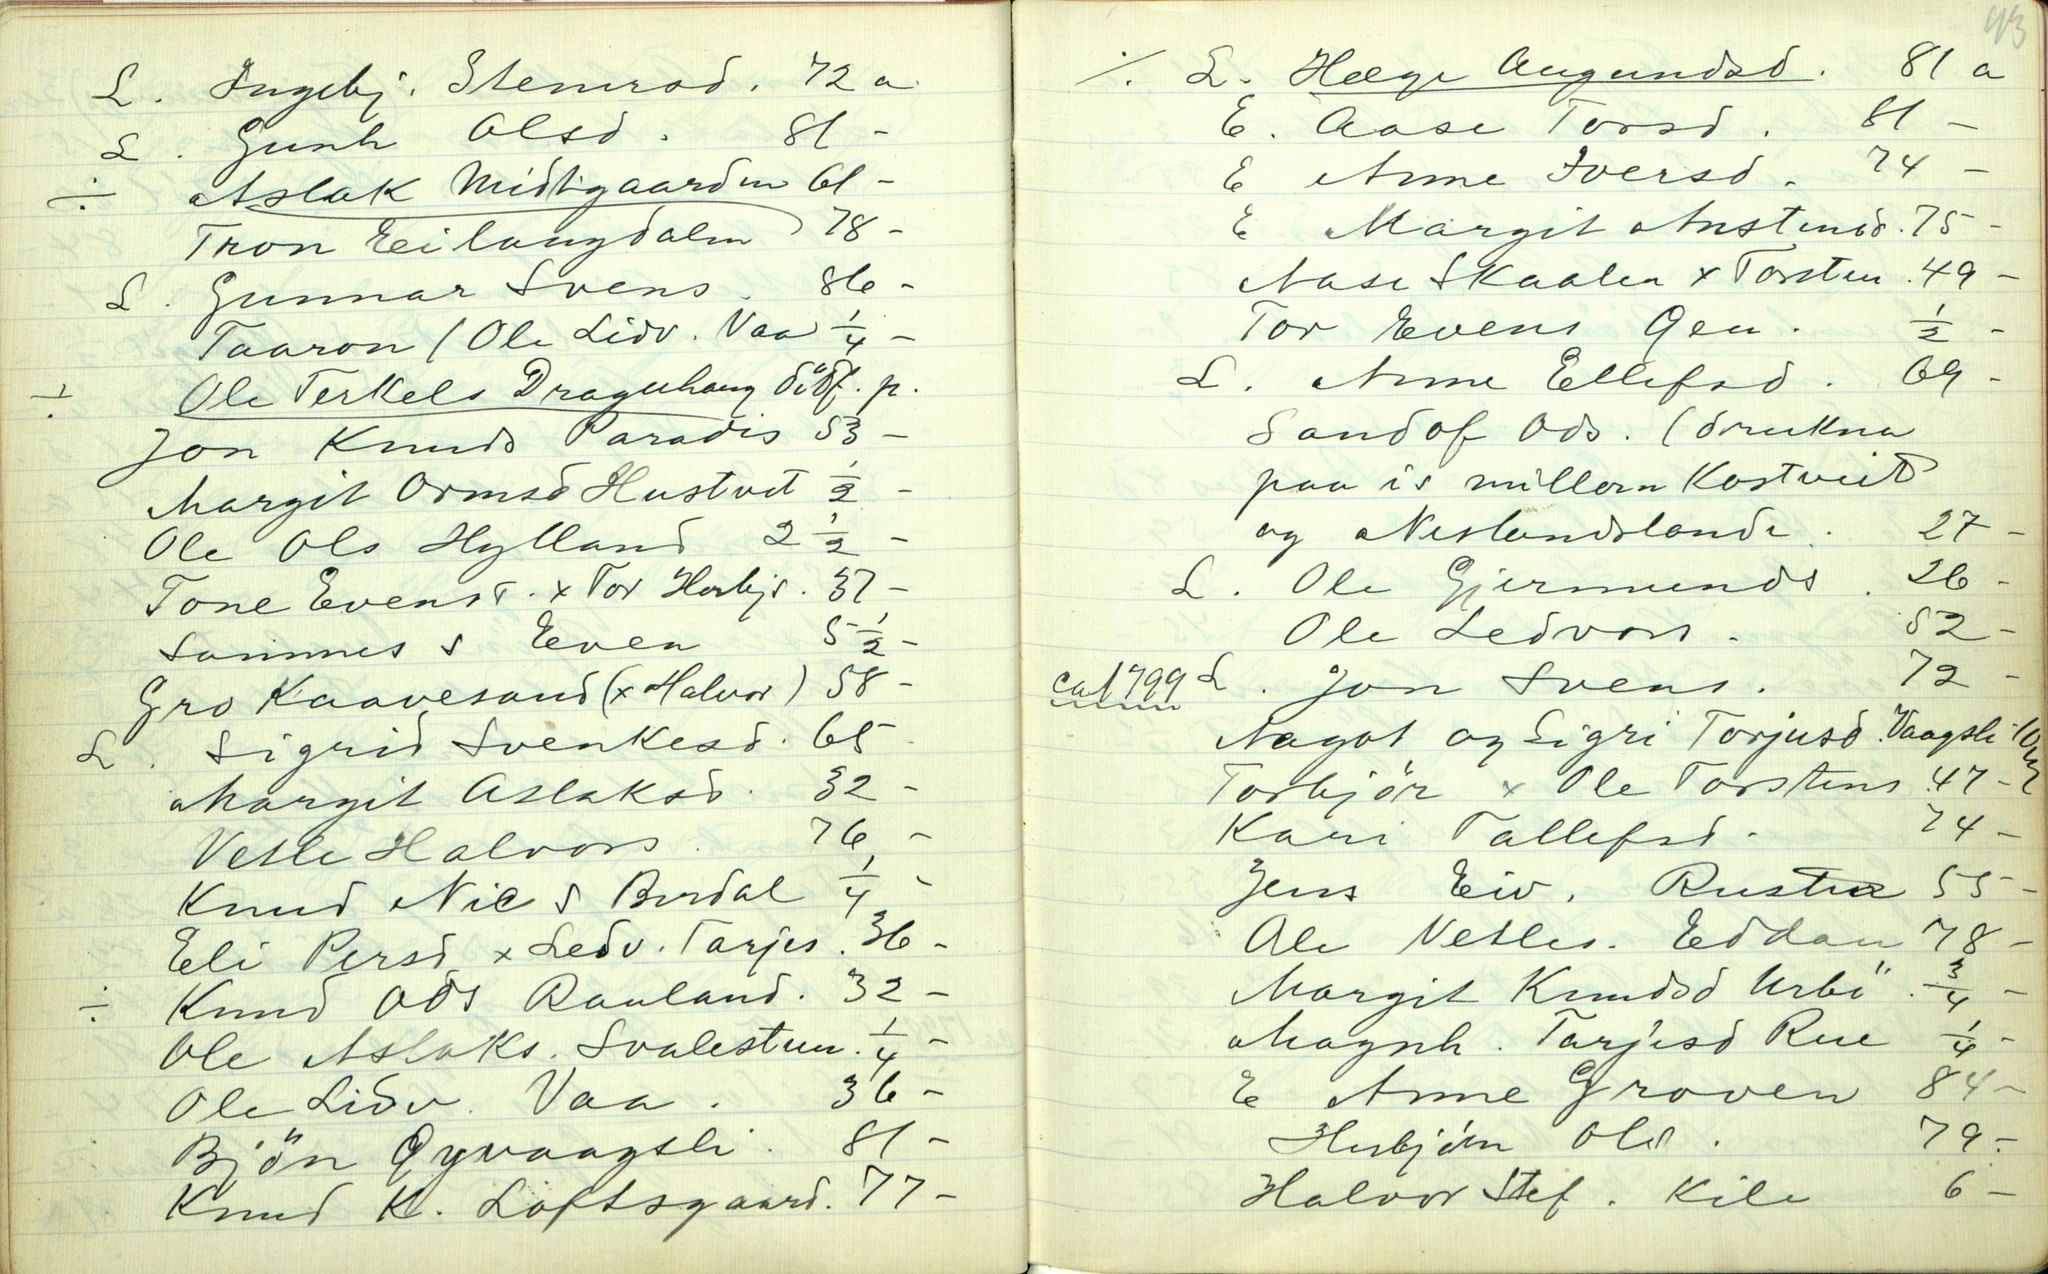 L. Ingebj. Steinersd. 72 a
L. Gunh Olsd. 81 -
÷ Aslak Midtigaarden 61 -
Tron Eilangdalen 78 -
L. Gunnar Svens. 86 -
Taaron (Ole Lidv. Vaa 1/4 -
÷ Ole Terkels Draguhaug dödf. p.
Jon Knuds Paradis 53 -
Margit Ormsd Hustvet 1/2 -
Ole Ols Hylland 2 1/2 -
Tone Evensd. x Tor Herbjs. 37 -
Sammes s Even 5 1/2 -
Gro Kaavesand (x Halvor) 58 -
L. Sigrid Svenkesd. 65 -
Margit Aslaksd. 32 -
Vetle Halvors 76 -
Knud Nic s Berdal 1/4 -
Eli Persd x Ledv. Tarjes. 36 -
÷ Knud Ods Rauland. 32 -
Ole Aslaks. Svalestuen. 1/4 -
Ole Lidv. Vaa. 36 -
Bjön Öyvaagsli. 81 -
Knud K. Loftsgaard. 77 -
43
·/. L. Hæge Augundsd. 81 a
E. Aase Torsd. 81 -
E Anne Iversd. 74 -
E Margit Anstensd. 75 -
Aase Skaalen x Torsten. 49 -
Tor Evens Øen. 1/2 -
L. Anne Ellefsd. 69 -
Sandof Ods. (drukna
paa is millom Kostveit
og Neslandslande. 27 -
L. Ole Gjermunds. 26 -
Ole Ledvors. 52 -
ca 1799 L. Jon Svens. 72 -
Aagot og Sigri Torjusd. Vaagsli
Torbjör x Ole Torstens. 47 -
Kari Tallefsd. 74 -
Jens Eiv. Rustue 55 -
Ole Vetles. Eddan 78 -
Margit Knudsd Urbö. 3/4 -
Magnh. Tarjesd Rue 1/4 -
E Anne Groven 84 -
Herbjörn Ols. 79 -
Halvor Stef. Kile 6 -